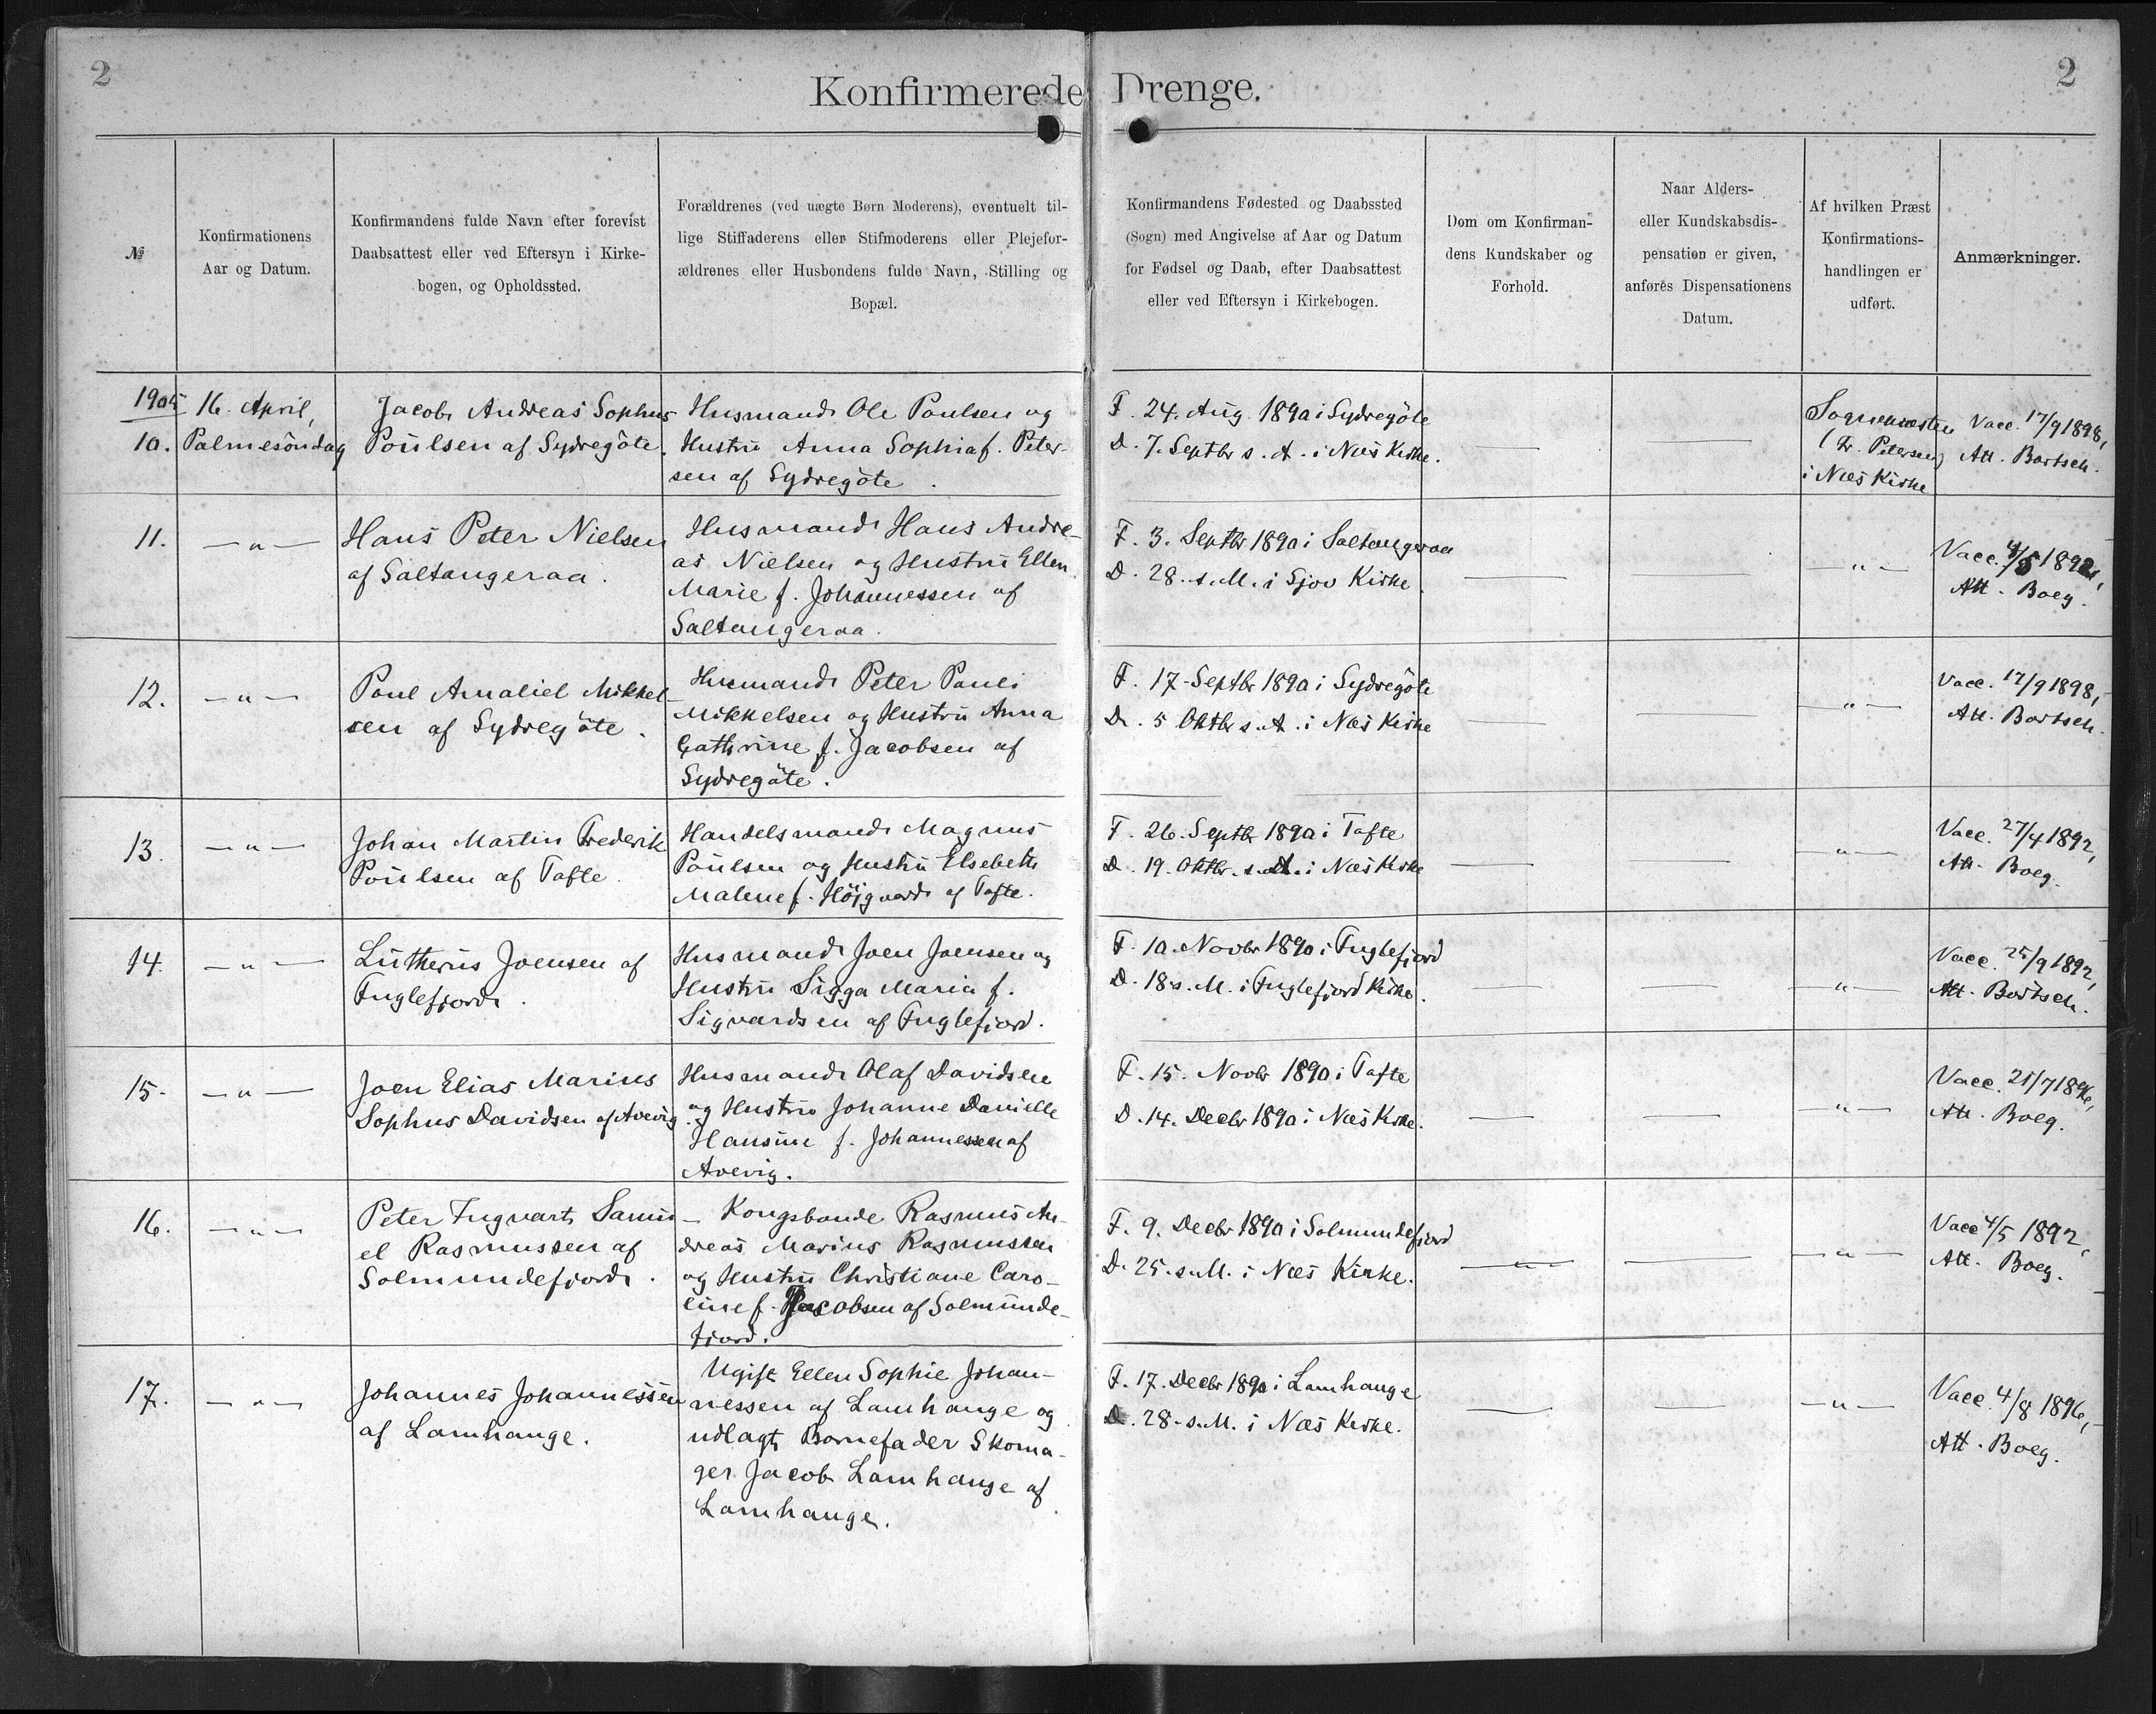 2
Konfirmerede Drenge.
2
№
Konfirmationens
Aar og Datum.
Konfirmandens fulde Navn efter forevist
Daabsattest eller ved Eftersyn i Kirke-
bogen, og Opholdssted.
Forældrenes (ved uægte Børn Moderens), eventuelt til-
lige Stiffaderens eller Stifmoderens eller Plejefor-
ældrenes eller Husbondens fulde Navn, Stilling og
Bopæl.
Konfirmandens Fødested og Daabssted
(Sogn) med Angivelse af Aar og Datum
for Fødsel og Daab, efter Daabsattest
eller ved Eftersyn i Kirkebogen.
Dom om Konfirman-
dens Kundskaber og
Forhold.
Naar Alders-
eller Kundskabsdis-
pensation er given,
anføres Dispensationens
Datum.
Af hvilken Præst
Konfirmations-
handlingen er
udført.
Anmærkninger.
1905
10.
16. April,
Palmesöndag
Jacob Andreas Sophus
Poulsen af Sydregöte.
Husmand Ole Poulsen og
Hustru Anna Sophia f. Peter-
sen af Sydregöte.
F. 24. Aug. 1890 i Sydregöte
D. 7. Septbr s. A. i Næs Kirke.
—
—
Sognepræsten
(Fr. Petersen)
i Næs Kirke
Vacc. 17/9 1898,
Att. Bärtsch.
11.
— " —
Hans Peter Nielsen
af Saltangeraa.
Husmand Hans Andre-
as Nielsen og Hustru Ellen
Marie f. Johannessen af
Saltangeraa.
F. 3. Septbr 1890 i Saltangeraa
D. 28. s. M. i Sjov Kirke.
—
—
— " —
Vacc. 4/5 1892,
Att. Boeg.
12.
— " —
Poul Amaliel Mikkel-
sen af Sydregöte.
Husmand Peter Pauli
Mikkelsen og Hustru Anna
Cathrine f. Jacobsen af
Sydregöte.
F. 17. Septbr 1890 i Sydregöte
D. 5 Oktbr s. A. i Næs Kirke
—
—
— " —
Vacc. 17/9 1898,
Att. Bärtsch.
13.
— " —
Johan Martin Frederik
Poulsen af Tofte.
Handelsmand Magnus
Poulsen og Hustru Elsebeth
Malene f. Höjgaard af Tofte.
F. 26. Septbr 1890 i Tofte
D. 19. Oktbr. s. A. i Næs Kirke
—
—
— " —
Vacc. 27/4 1892,
Att. Boeg.
14.
— " —
Lutherus Joensen af
Fuglefjord.
Husmand Joen Joensen og
Hustru Sigga Maria f.
Sigvardsen af Fuglefjord.
F. 10. Novbr 1890 i Fuglefjord
D. 18. s. M. i Fuglefjord Kirke.
—
—
— " —
Vacc. 25/9 1892,
Att. Bärtsch.
15.
— " —
Joen Elias Marius
Sophus Davidsen af Avevig
Husmand Olaf Davidsen
og Hustru Johanne Danielle
Hansine f. Johannessen af
Avevig.
F. 15. Novbr 1890 i Tofte
D. 14. Decbr 1890 i Næs Kirke.
—
—
— " —
Vacc. 21/7 1896,
Att. Boeg.
16.
— " —
Peter Ingvart Samu-
el Rasmussen af
Solmundefjord.
Kongsbonde Rasmus An-
dreas Marius Rasmussen
og Hustru Christiane Caro-
line f. Jacobsen af Solmunde-
fjord.
F. 9. Decbr 1890 i Solmundefjord
D. 25. s. M. i Næs Kirke.
— " —
—
— " —
Vacc 4/5 1892,
Att. Boeg.
17.
— " —
Johannes Johannessen
af Lamhauge.
Ugift Ellen Sophie Johan-
nessen af Lamhauge og
udlagt Barnefader Skoma-
ger Jacob Lamhauge af
Lamhauge.
F. 17. Decbr 1890 i Lamhauge
D. 28. s. M. i Næs Kirke.
—
—
— " —
Vacc. 4/8 1896,
Att. Boeg.